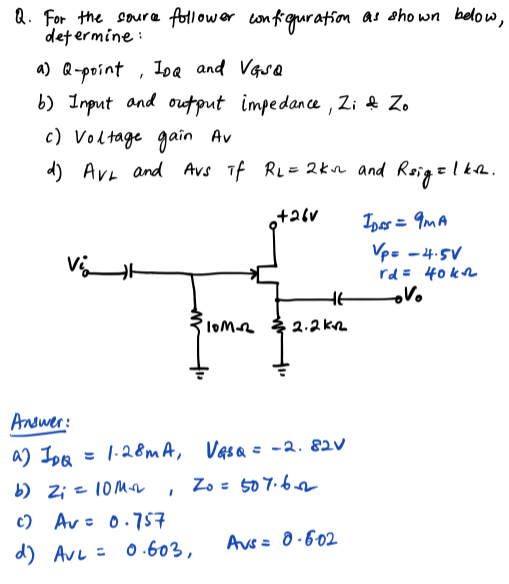 Q. For the source follower configuration as shown below,
determine :
a) Q-point , IDQ and VGSQ
b) Input and output impedance , Zi & Zo
c) Voltage gain Av
d) AVL and AVS if RL = 2kΩ and Rsig = 1kΩ.
+26V
IDSS = 9mA
Vp = -4.5V
rd = 40kΩ
Vi
Vo
10MΩ
2.2kΩ
Answer:
a) IDQ = 1.28mA, VGSQ = -2.82V
b) Zi = 10MΩ , Zo = 507.6Ω
c) Av = 0.757
d) AVL = 0.603, AVS = 0.602